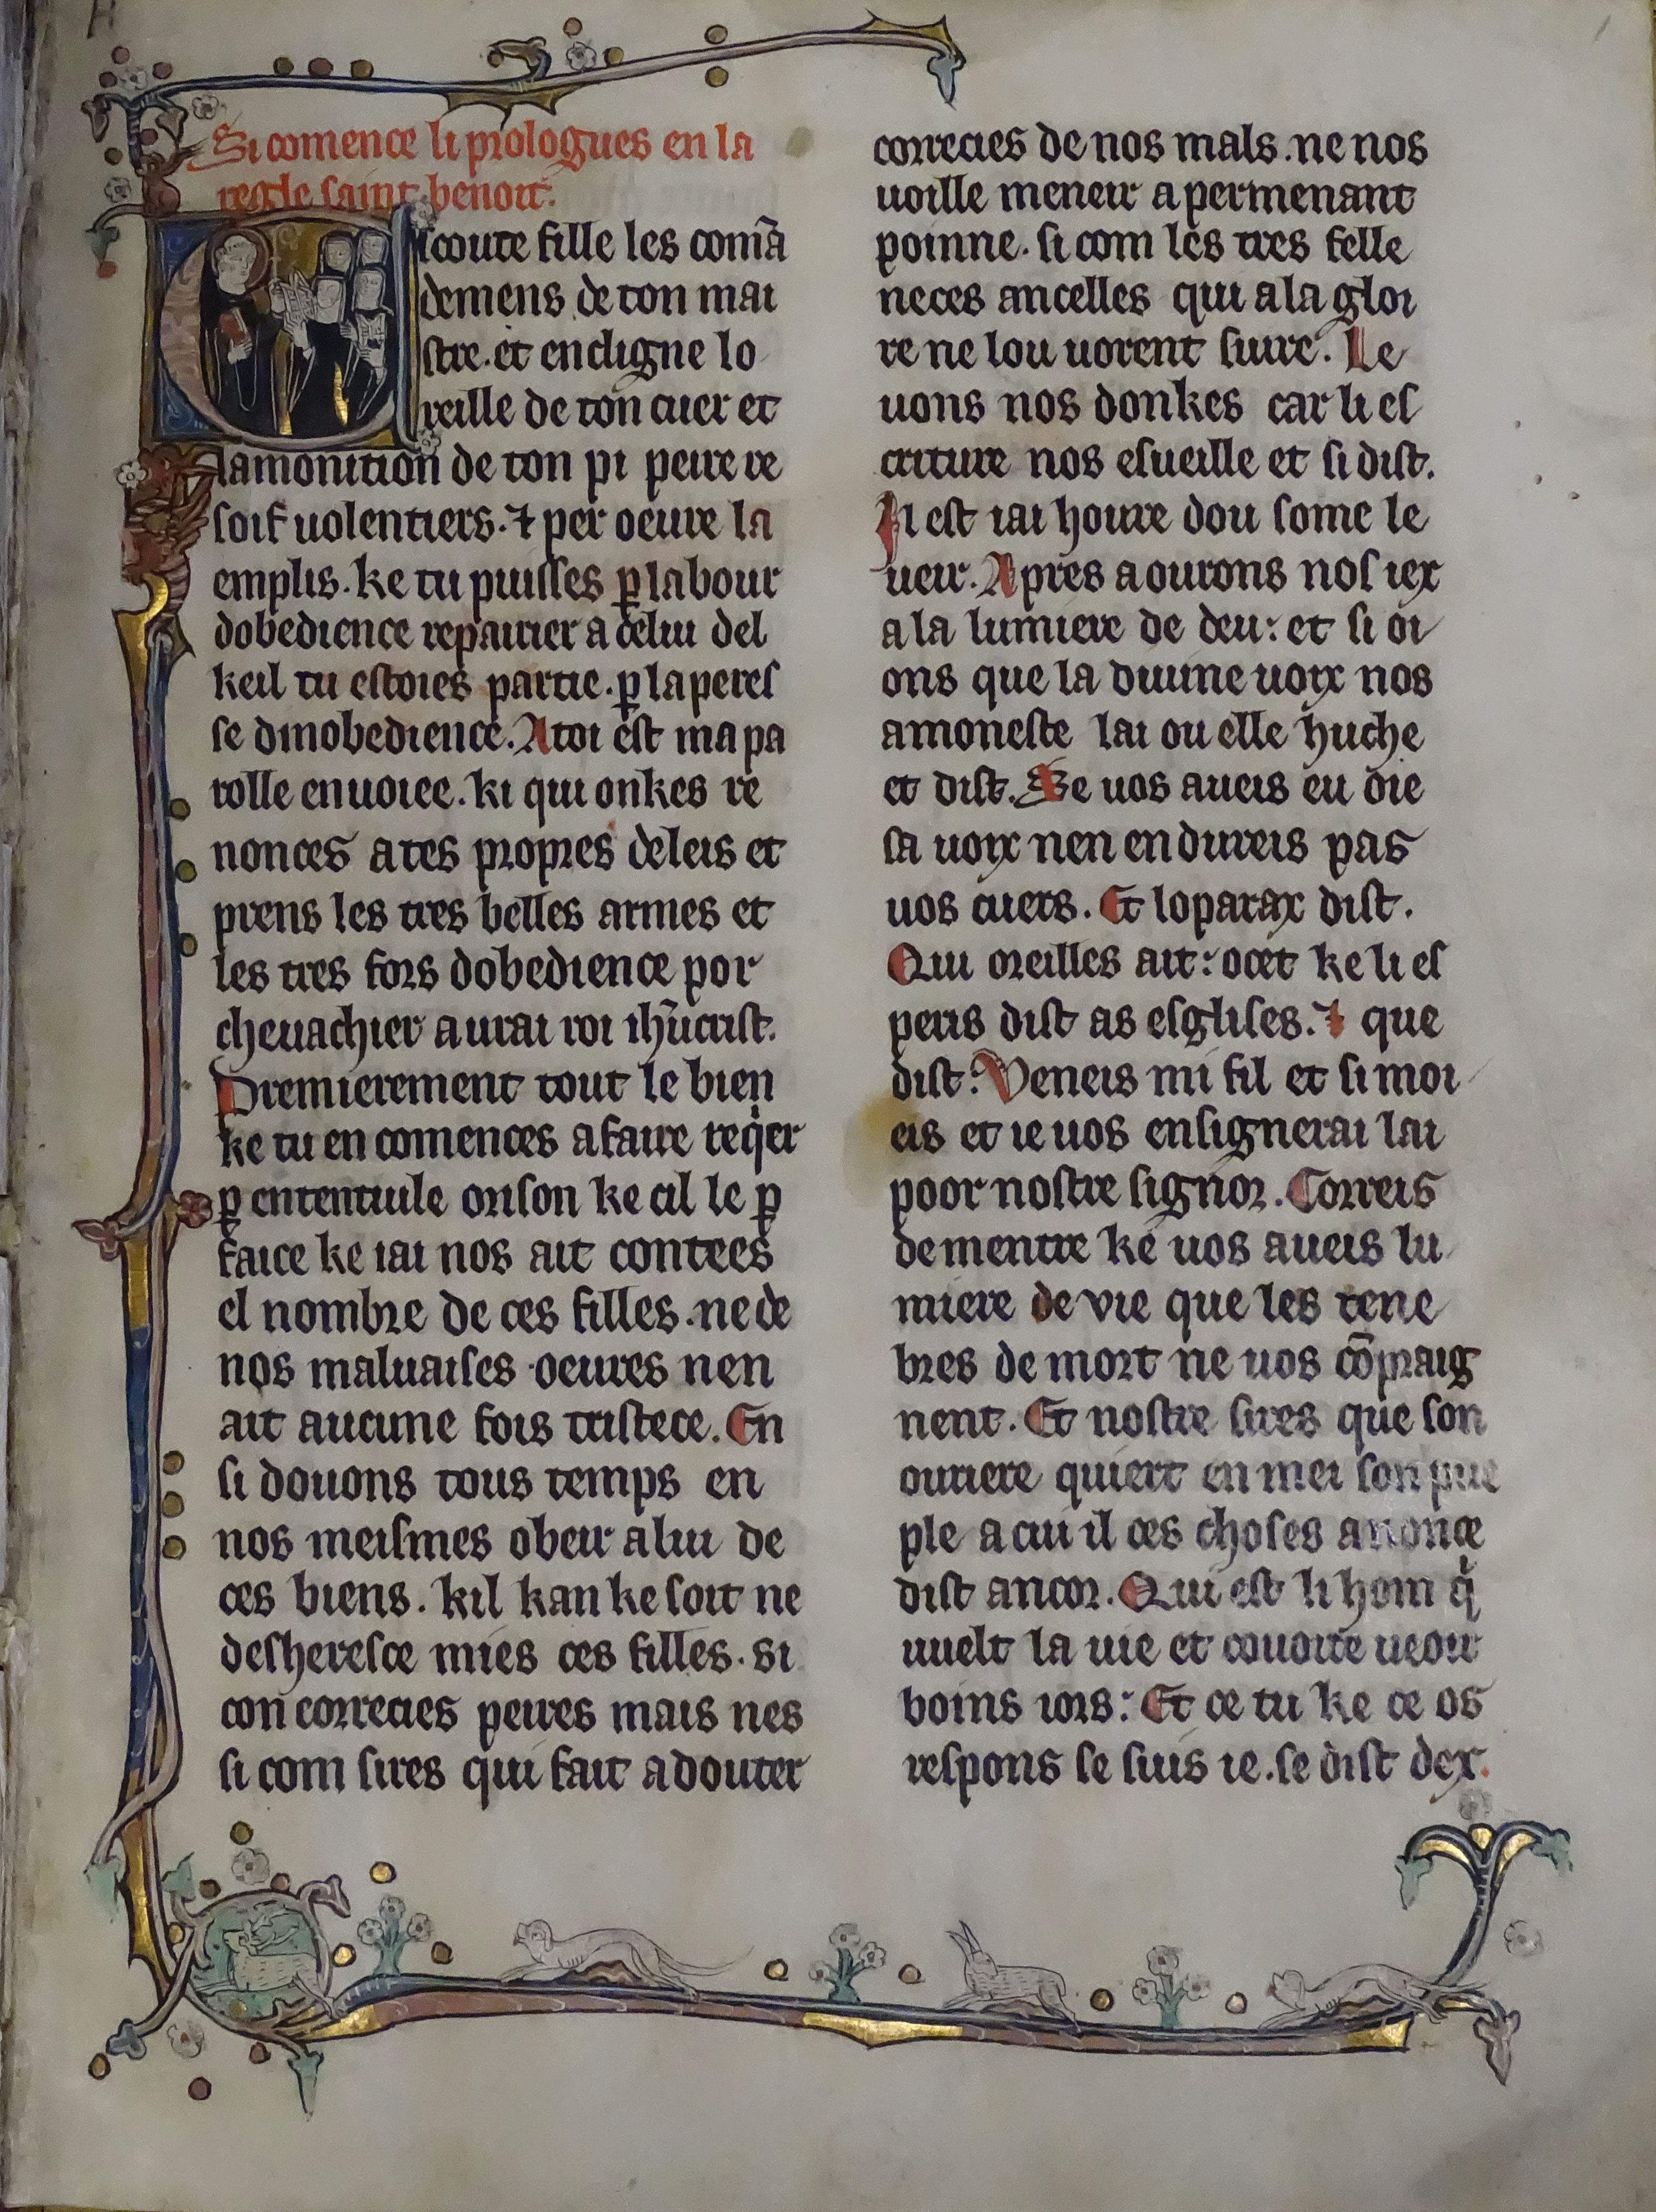 Si comence li prologues en la
regle saint benoit.
Escoute fille les comā
demens de ton mai
stre. et encligne lo
reille de ton cuer et
lamonition de ton pi peire re
soif uolentiers. ⁊ per oeure la
emplis. ke tu puisses ꝑ labour
dobedience repairier a celui del
keil tu estoies partie. ꝑ la peres
se dinobedience. A toi est ma pa
rolle enuoiee. ki qui onkes re
nonces a tes propres deleis et
prens les tres belles armes et
les tres fors dobedience por
cheuachier a urai roi ihūcrist.
Premierement tout le bien
ke tu en comences a faire reqͥer
ꝑ ententiule orison ke cil le ꝑ
faice ke iai nos ait contees
el nombre de ces filles. ne de
nos maluaises oeures nen
ait aucune fois tristece. En
si douons tous temps en
nos meismes obeir a lui de
ces biens. kil kan ke soit ne
desheresce mies ces filles. si
con correcies peires mais nes
si com sires qui fait a douter
correcies de nos mals. ne nos
uoille meneir a permenant
poinne. si com les tres felle
neces ancelles qui a la gloi
re ne lou uorent suire. Le
uons nos donkes car li es
criture nos esueille et si dist.
Il est iai houre dou some le
ueir. Apres aourons nos iex
a la lumiere de deu: et si oi
ons que la diuine uoix nos
amoneste lai ou elle huche
et dist. Se uos aueis eu oie
sa uoix nen endureis pas
uos cuers. Et loparax dist.
Qui oreilles ait: ocet ke li es
peris dist as esglises. ⁊ que
dist? Veneis mi fil et si moi
eis et ie uos ensignerai lai
poor nostre signor. Correis
dementre ke uos aueis lu
miere de vie que les tene
bres de mort ne uos cōpraig
nent. Et nostre sires que son
ouriere quiert en mei son pue
ple a cui il ces choses anonce
dist ancor. Qui est li hom qͥ
uuelt la uie et couoite ueoir
boins iors: Et ce tu ke ce os
respons se suis ie. se dist dex.